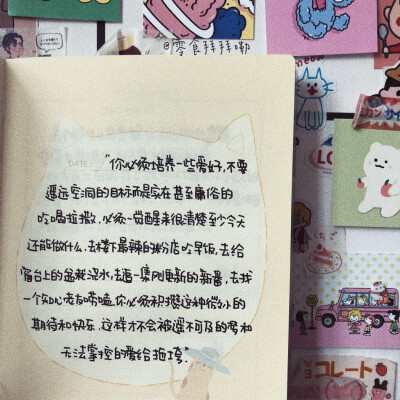 @零食拜拜嘞
DATE:
"你必须培养一些爱好，不要
遥远空洞的目标而是实在甚至庸俗的
吃喝拉撒，必须一觉醒来很清楚至少今天
还能做什么，去楼下最辣的粉店吃早饭，去给
窗台上的盆栽浇水，去追一集刚更新的新番，去找
一个知心老友唠嗑，你必须积攒这种微小的
期待和快乐，这样才不会被遥不可及的梦和
无法掌控的爱给拖垮。"
いちご
コレート